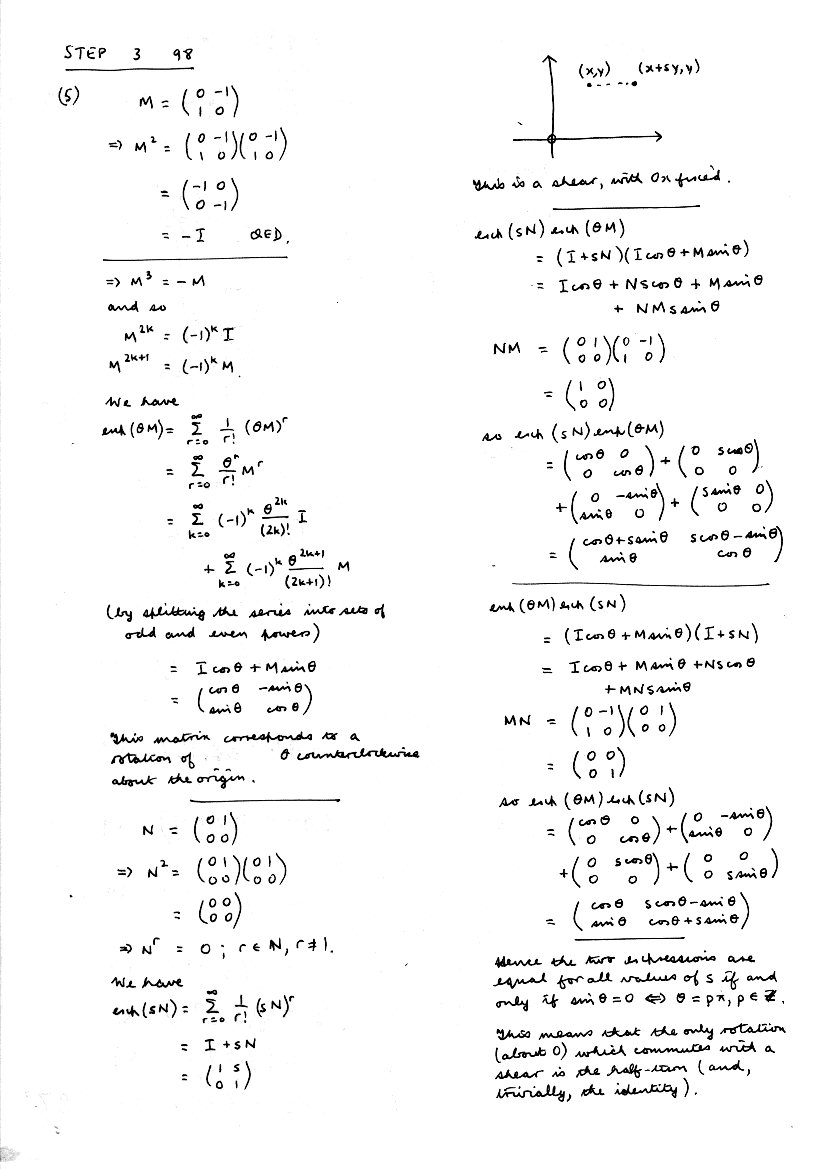 STEP 3 98
(5) M = (0 -1; 1 0)
=> M² = (0 -1; 1 0)(0 -1; 1 0)
= (-1 0; 0 -1)
= - I QED.
=> M³ = - M
and so
M^{2k} = (-1)^k I
M^{2k+1} = (-1)^k M
We have
exp(θM) = Σ_{r=0}^{∞} 1/r! (θM)^r
= Σ_{r=0}^{∞} θ^r/r! M^r
= Σ_{k=0}^{∞} (-1)^k θ^{2k}/(2k)! I
+ Σ_{k=0}^{∞} (-1)^k θ^{2k+1}/(2k+1)! M
(by splitting the series into sets of
odd and even powers)
= I cos θ + M sin θ
= (cos θ -sin θ; sin θ cos θ)
This matrix corresponds to a
rotation of θ counterclockwise
about the origin.
N = (0 1; 0 0)
=> N² = (0 1; 0 0)(0 1; 0 0)
= (0 0; 0 0)
=> N^r = 0 ; r ∈ ℕ, r ≠ 1.
We have
exp(sN) = Σ_{r=0}^{∞} 1/r! (sN)^r
= I + sN
= (1 s; 0 1)
(x,y) (x+sy, y)
This is a shear, with Ox fixed.
exp(sN) exp(θM)
= (I + sN)(I cos θ + M sin θ)
= I cos θ + N s cos θ + M sin θ
+ NM s sin θ
NM = (0 1; 0 0)(0 -1; 1 0)
= (1 0; 0 0)
so exp(sN) exp(θM)
= (cos θ 0; 0 cos θ) + (0 s cos θ; 0 0)
+ (0 -sin θ; sin θ 0) + (s sin θ 0; 0 0)
= (cos θ + s sin θ s cos θ - sin θ; sin θ cos θ)
exp(θM) exp(sN)
= (I cos θ + M sin θ)(I + sN)
= I cos θ + M sin θ + N s cos θ
+ MN s sin θ
MN = (0 -1; 1 0)(0 1; 0 0)
= (0 0; 0 1)
so exp(θM) exp(sN)
= (cos θ 0; 0 cos θ) + (0 -sin θ; sin θ 0)
+ (0 s cos θ; 0 0) + (0 0; 0 s sin θ)
= (cos θ s cos θ - sin θ; sin θ cos θ + s sin θ)
Hence the two expressions are
equal for all values of s if and
only if sin θ = 0 ⇔ θ = pπ, p ∈ ℤ.
This means that the only rotation
(about O) which commutes with a
shear is the half-turn (and,
trivially, the identity).